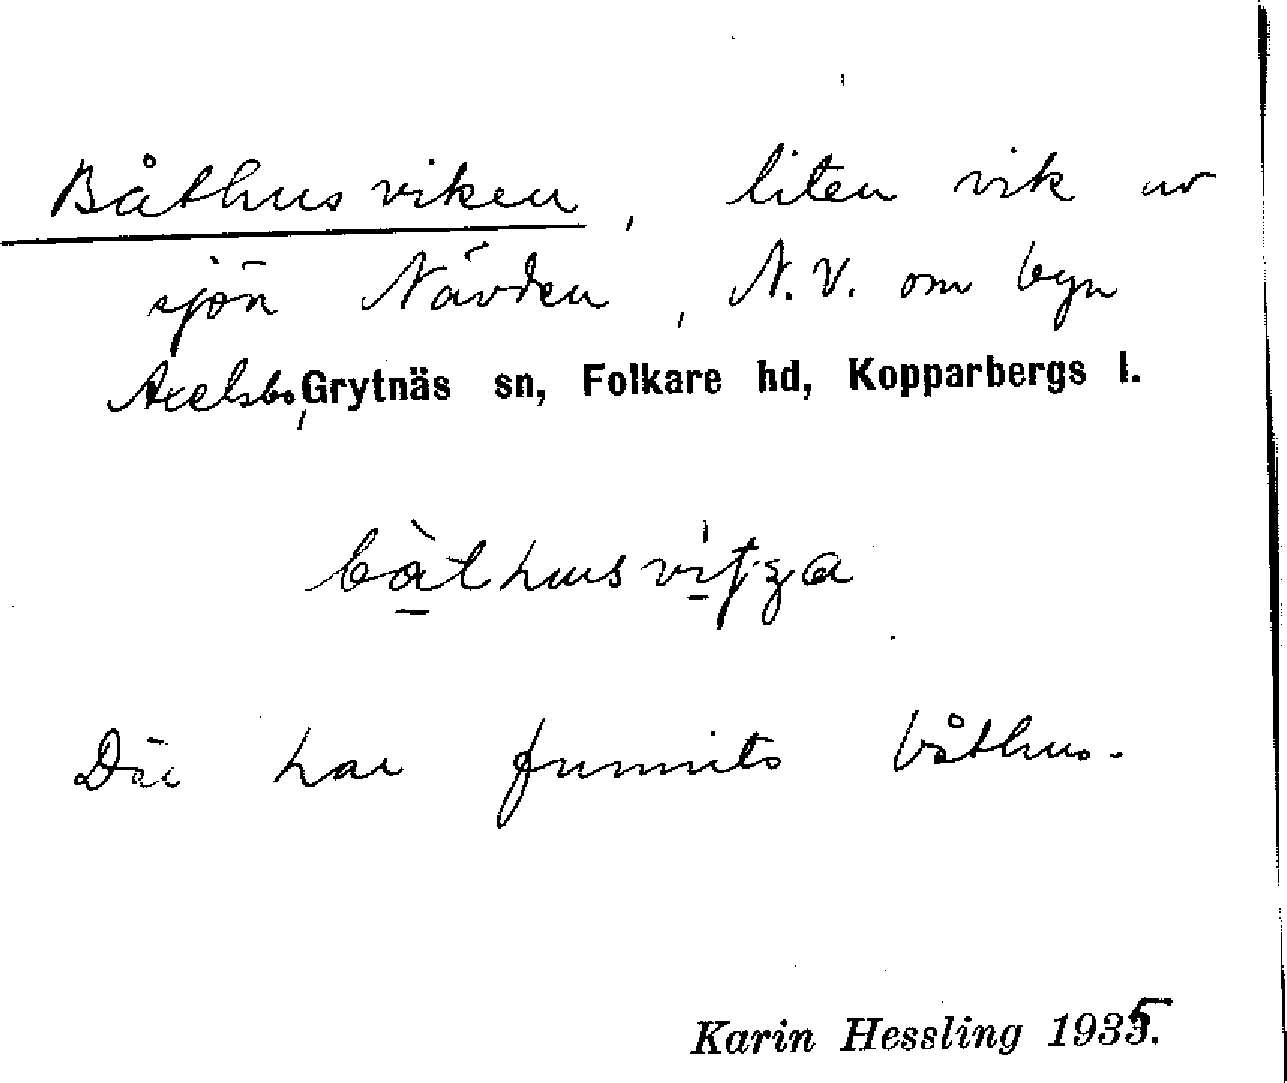 Båthusviken, liten vik av
sjön Nävden, N.V. om byn
Axelsbo, Grytnäs sn, Folkare hd, Kopparbergs l.
Där har funnits båthus.
Karin Hessling 1935.